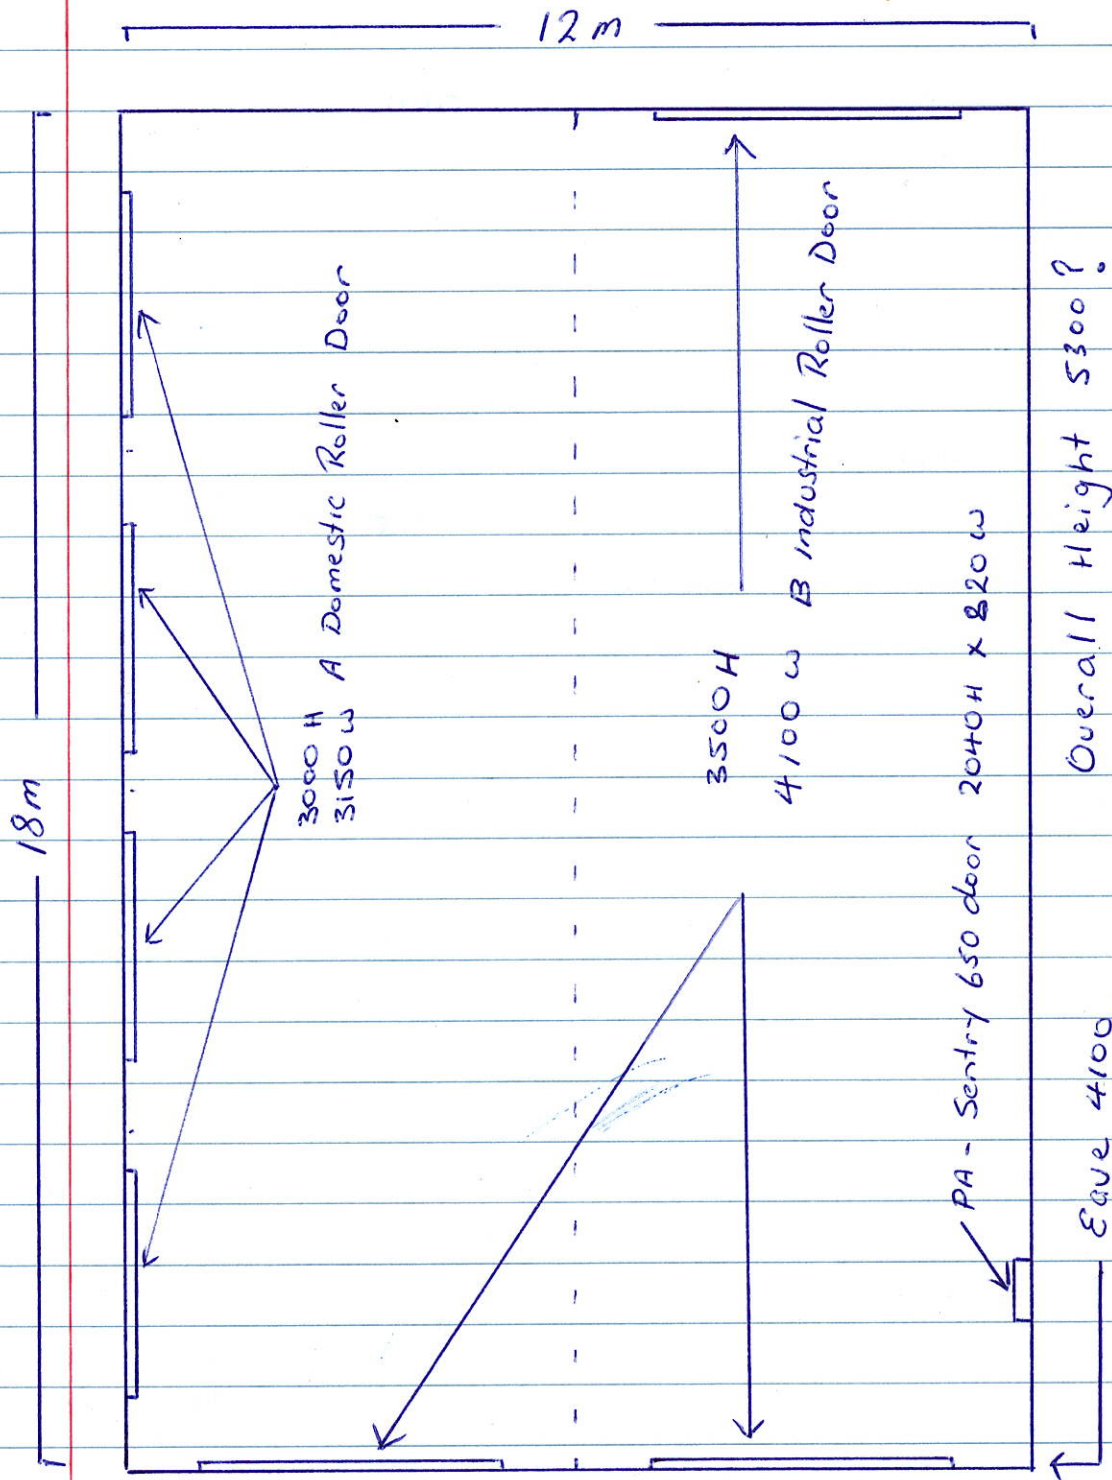 12m
18m
3000 H
3150 W A Domestic Roller Door
3500 H
4100 W B Industrial Roller Door
PA - Sentry 650 door 2040H x 820 W
Eave 4100
Overall Height 5300?